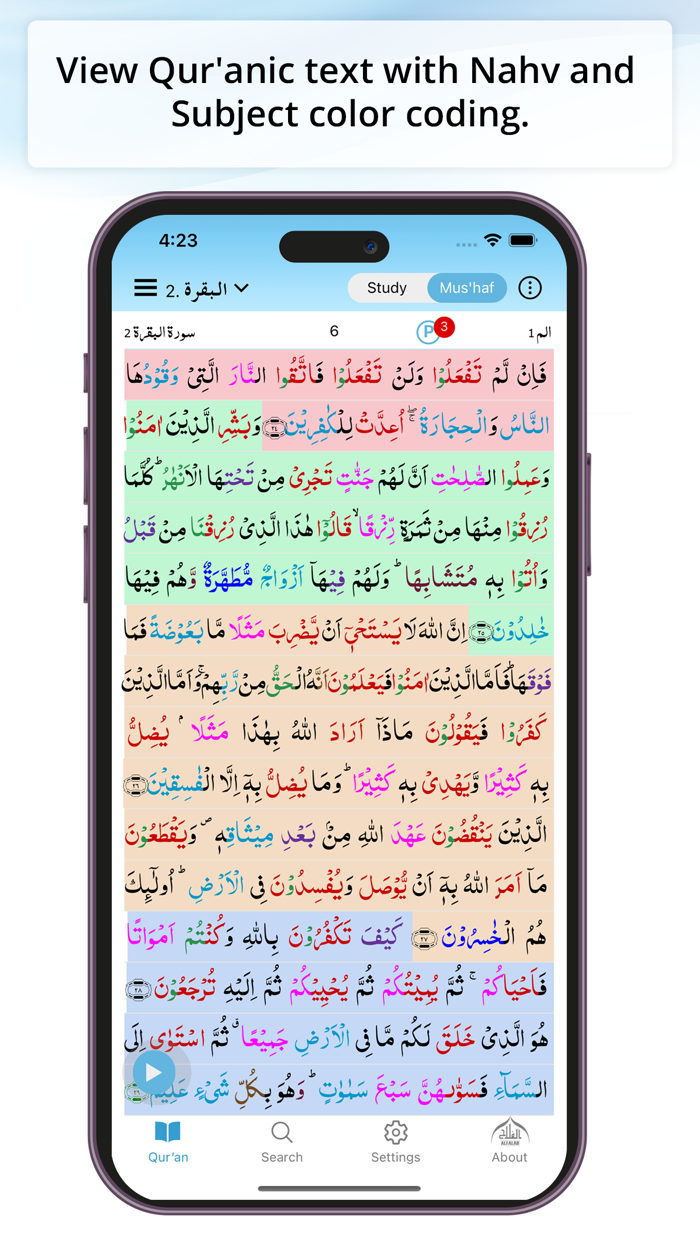 View Qur'anic text with Nahv and
Subject color coding.
4:23
2. البقرة
Study
Mus'haf
سورة البقرة 2
6
P
3
الم 1
فَاِنْ لَّمْ تَفْعَلُوْا وَلَنْ تَفْعَلُوْا فَاتَّقُوا النَّارَ الَّتِیْ وَقُوْدُهَا
النَّاسُ وَالْحِجَارَةُ ۖۚ اُعِدَّتْ لِلْكٰفِرِیْنَ ۝۲۴ وَبَشِّرِ الَّذِیْنَ اٰمَنُوْا
وَعَمِلُوا الصّٰلِحٰتِ اَنَّ لَهُمْ جَنّٰتٍ تَجْرِیْ مِنْ تَحْتِهَا الْاَنْهٰرُ ؕ كُلَّمَا
رُزِقُوْا مِنْهَا مِنْ ثَمَرَةٍ رِّزْقًا ۙ قَالُوْا هٰذَا الَّذِیْ رُزِقْنَا مِنْ قَبْلُ
وَاُتُوْا بِهٖ مُتَشَابِهًا ؕ وَلَهُمْ فِیْهَاۤ اَزْوَاجٌ مُّطَهَّرَةٌ وَّهُمْ فِیْهَا
خٰلِدُوْنَ ۝۲۵ اِنَّ اللّٰهَ لَا یَسْتَحْیٖۤ اَنْ یَّضْرِبَ مَثَلًا مَّا بَعُوْضَةً فَمَا
فَوْقَهَا ؕ فَاَمَّا الَّذِیْنَ اٰمَنُوْا فَیَعْلَمُوْنَ اَنَّهُ الْحَقُّ مِنْ رَّبِّهِمْ ۚ وَاَمَّا الَّذِیْنَ
كَفَرُوْا فَیَقُوْلُوْنَ مَاذَاۤ اَرَادَ اللّٰهُ بِهٰذَا مَثَلًا ۘ یُضِلُّ
بِهٖ كَثِیْرًا وَّیَهْدِیْ بِهٖ كَثِیْرًا ؕ وَمَا یُضِلُّ بِهٖۤ اِلَّا الْفٰسِقِیْنَ ۝۲۶
الَّذِیْنَ یَنْقُضُوْنَ عَهْدَ اللّٰهِ مِنْۢ بَعْدِ مِیْثَاقِهٖ ۪ وَیَقْطَعُوْنَ
مَاۤ اَمَرَ اللّٰهُ بِهٖۤ اَنْ یُّوْصَلَ وَیُفْسِدُوْنَ فِی الْاَرْضِ ؕ اُولٰٓىِٕكَ
هُمُ الْخٰسِرُوْنَ ۝۲۷ كَیْفَ تَكْفُرُوْنَ بِاللّٰهِ وَكُنْتُمْ اَمْوَاتًا
فَاَحْیَاكُمْ ۚ ثُمَّ یُمِیْتُكُمْ ثُمَّ یُحْیِیْكُمْ ثُمَّ اِلَیْهِ تُرْجَعُوْنَ ۝۲۸
هُوَ الَّذِیْ خَلَقَ لَكُمْ مَّا فِی الْاَرْضِ جَمِیْعًا ۗ ثُمَّ اسْتَوٰۤی اِلَی
السَّمَآءِ فَسَوّٰىهُنَّ سَبْعَ سَمٰوٰتٍ ؕ وَهُوَ بِكُلِّ شَیْءٍ عَلِیْمٌ ۝۲۹
Qur'an
Search
Settings
About
الفلاح
ALFALAH